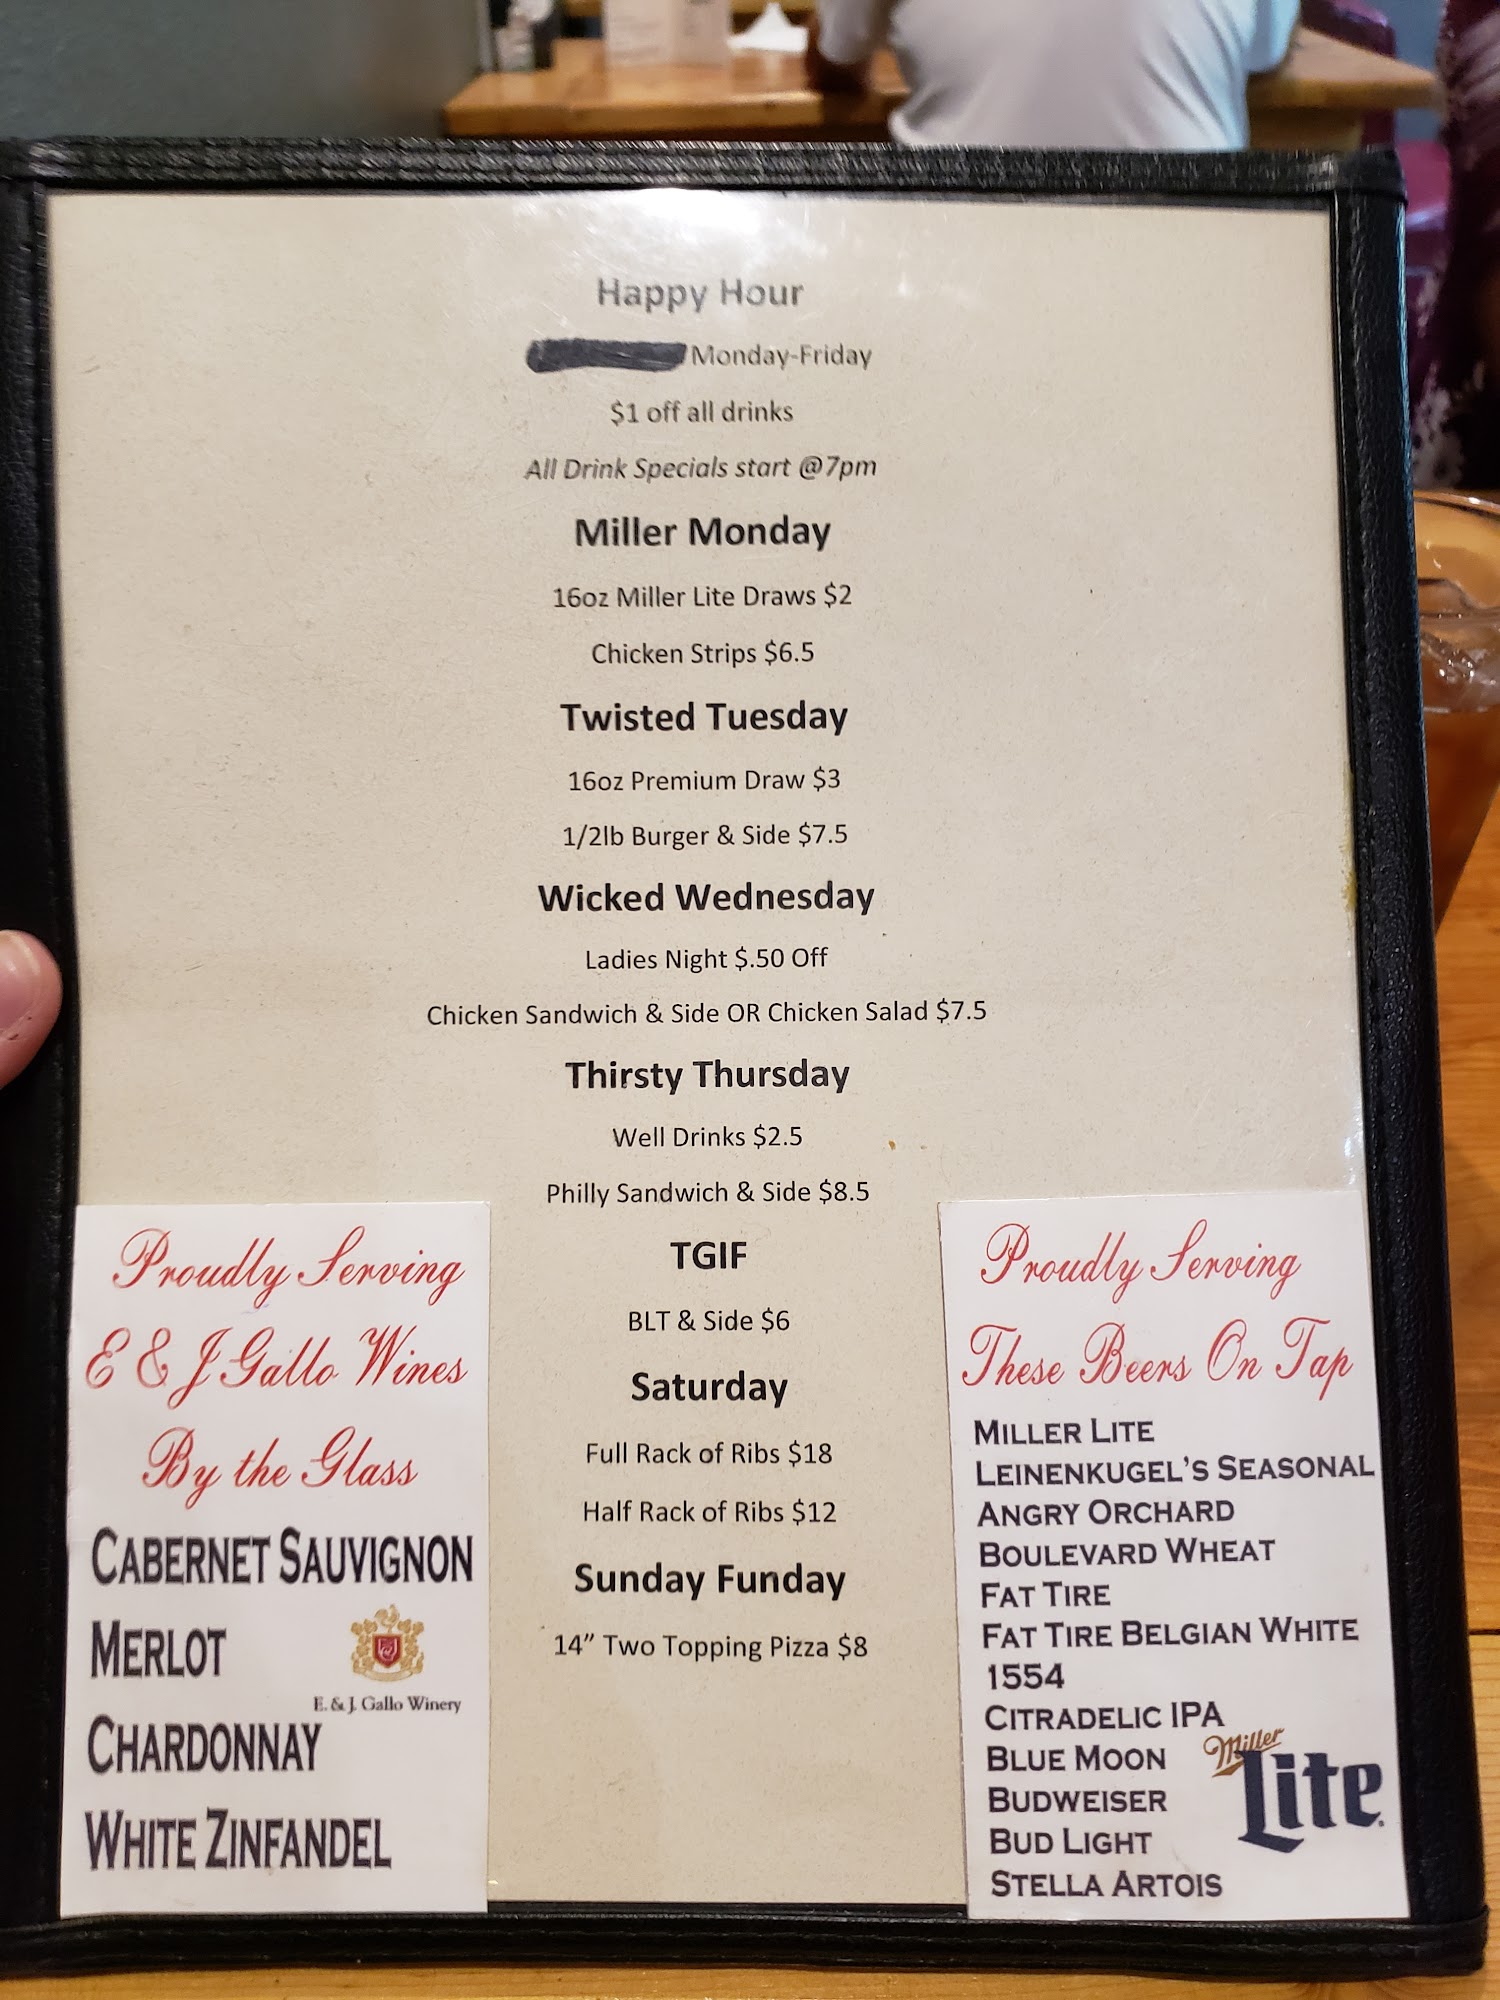 Happy Hour
Monday-Friday
$1 off all drinks
All Drink Specials start @7pm
Miller Monday
16oz Miller Lite Draws $2
Chicken Strips $6.5
Twisted Tuesday
16oz Premium Draw $3
1/2lb Burger & Side $7.5
Wicked Wednesday
Ladies Night $.50 Off
Chicken Sandwich & Side OR Chicken Salad $7.5
Thirsty Thursday
Well Drinks $2.5
Philly Sandwich & Side $8.5
TGIF
BLT & Side $6
Saturday
Full Rack of Ribs $18
Half Rack of Ribs $12
Sunday Funday
14” Two Topping Pizza $8
Proudly Serving
E & J Gallo Wines
By the Glass
CABERNET SAUVIGNON
MERLOT
E. & J. Gallo Winery
CHARDONNAY
WHITE ZINFANDEL
Proudly Serving
These Beers On Tap
MILLER LITE
LEINENKUGEL'S SEASONAL
ANGRY ORCHARD
BOULEVARD WHEAT
FAT TIRE
FAT TIRE BELGIAN WHITE
1554
CITRADELIC IPA
BLUE MOON
BUDWEISER
BUD LIGHT
STELLA ARTOIS
Miller
Lite